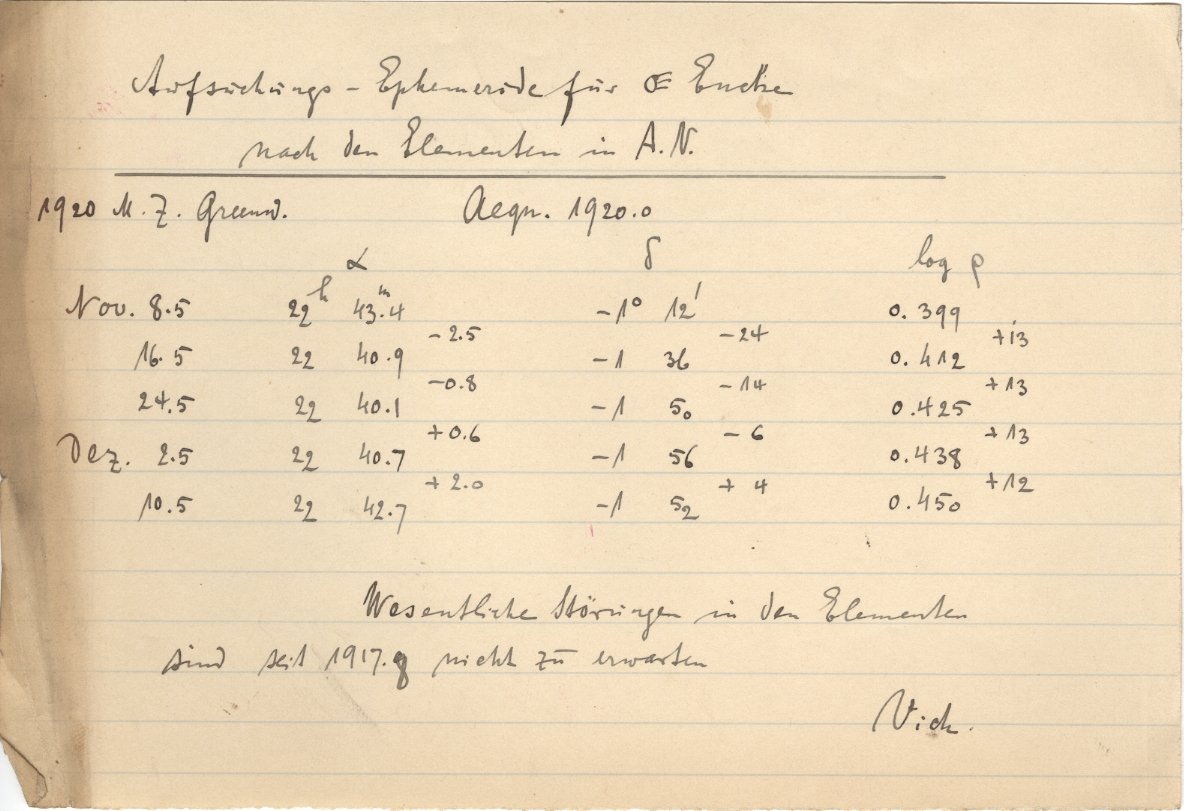 Aufsuchungs-Ephemeride für Œ Encke
nach den Elementen in A.N.
1920 M. Z. Greenw. Aequ. 1920.0
α δ log ρ
Nov. 8.5 22ʰ 43ᵐ.4 -1° 12' 0.399
-2.5 -24 +13
16.5 22 40.9 -1 36 0.412
-0.8 -14 +13
24.5 22 40.1 -1 50 0.425
+0.6 -6 +13
Dez. 2.5 22 40.7 -1 56 0.438
+2.0 +4 +12
10.5 22 42.7 -1 52 0.450
Wesentliche Störungen in den Elementen
sind seit 1917.9 nicht zu erwarten
Vick.